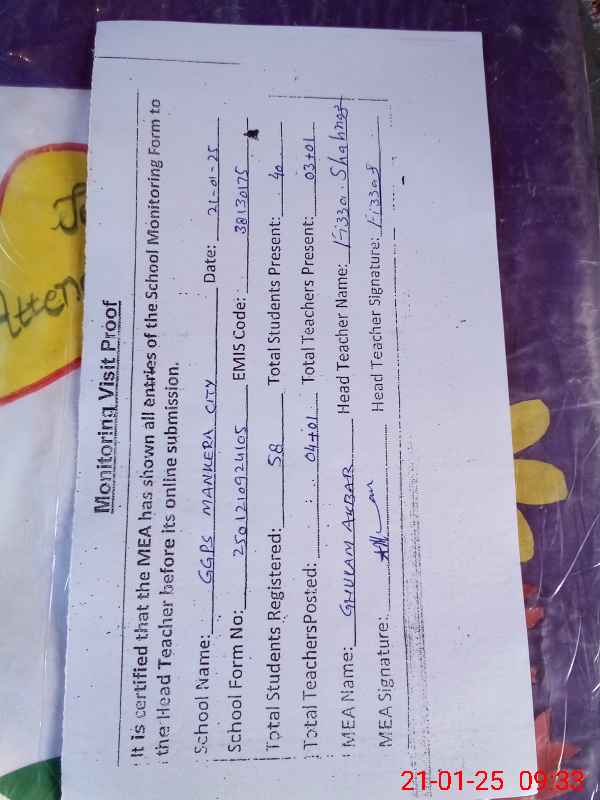 Monitoring Visit Proof
It is certified that the MEA has shown all entries of the School Monitoring Form to
the Head Teacher before its online submission.
School Name: GGPS MANKERA CITY Date: 21-01-25
School Form No: 2501210924105 EMIS Code: 38130175
Total Students Registered: 58 Total Students Present: 40
Total TeachersPosted: 04+01 Total Teachers Present: 03+01
MEA Name: GHULAM AKBAR Head Teacher Name: Fizza Shahnaz
MEA Signature: Head Teacher Signature: Fizza
Atten
21-01-25 09:33